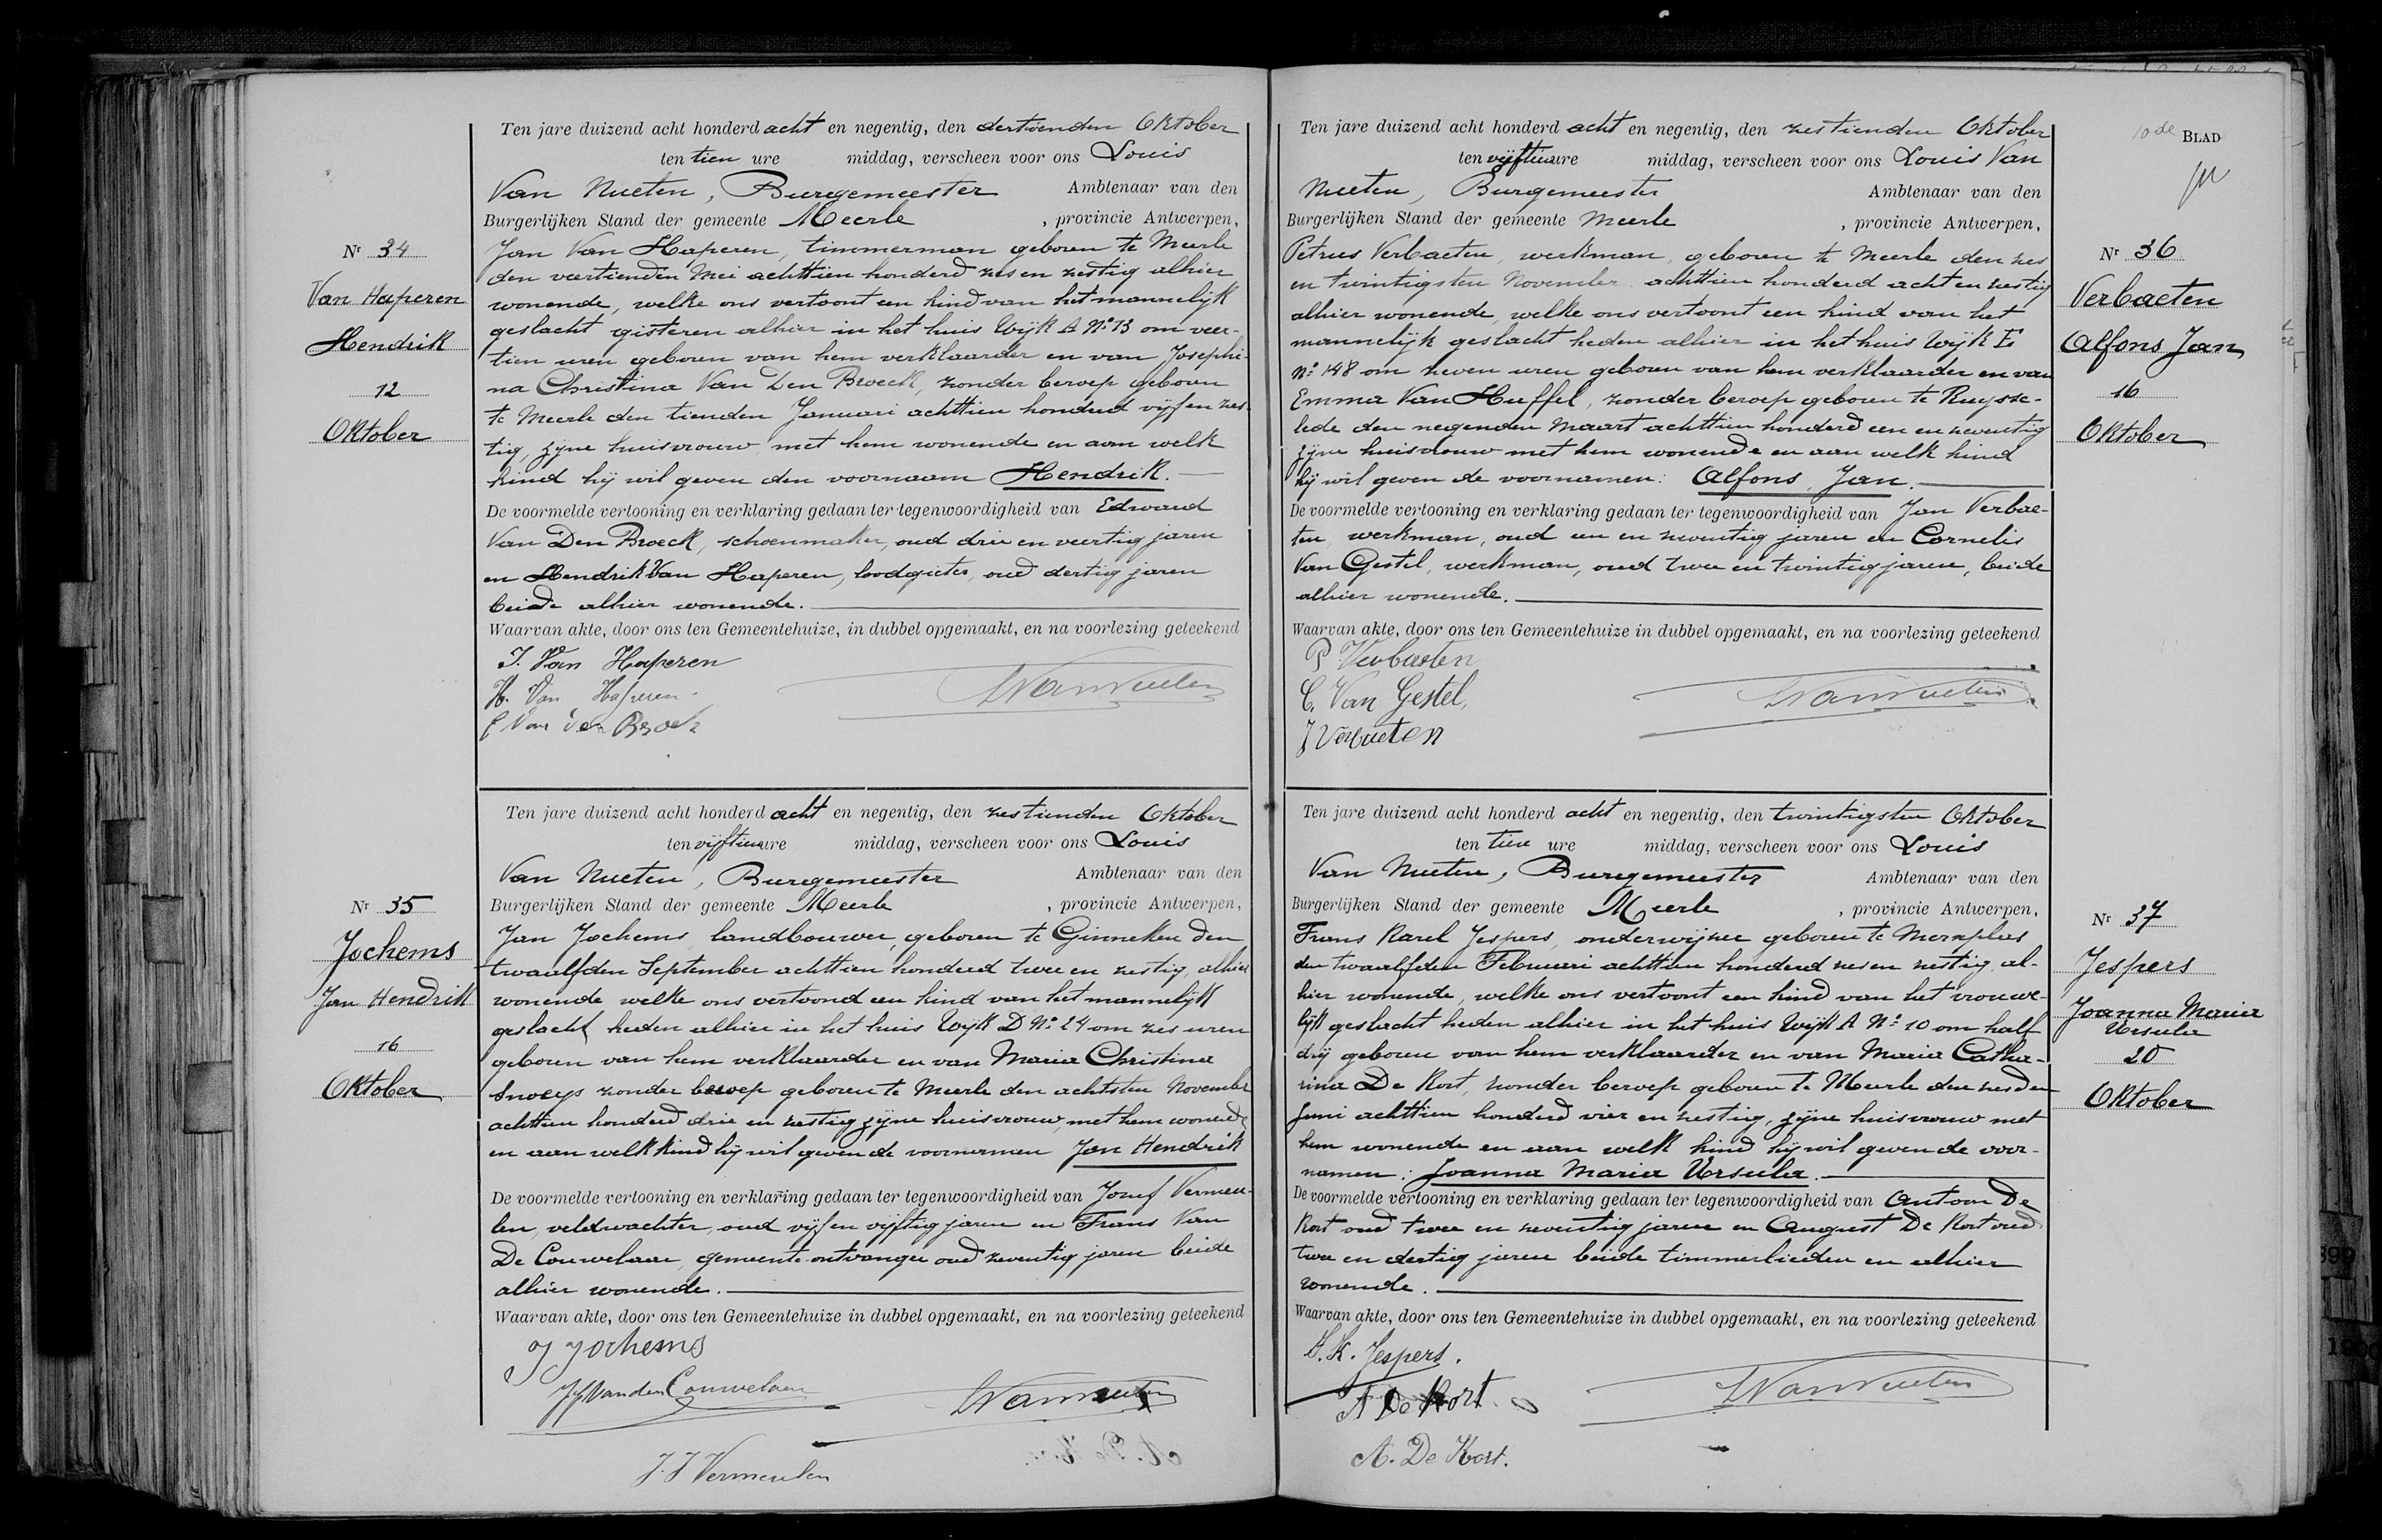 Ten jare duizend acht honderd acht en negentig, den dertienden Oktober
ten tien ure middag, verscheen voor ons Louis
Van Nueten, Burgemeester Ambtenaar van den
Burgerlijken Stand der gemeente Meerle , provincie Antwerpen,
Nr 34
Van Haperen
Hendrik
12
Oktober
Jan Van Haperen, timmerman geboren te Meerle
den veertienden Mei achttien honderd zes en zestig alhier
wonende, welke ons vertoont een kind van het mannelijk
geslacht gisteren alhier in het huis Wijk A No 13 om veer-
tien uren geboren van hem verklaarder en van Josephi-
na Christina Van Den Broeck, zonder beroep geboren
te Meerle den tienden Januari achttien honderd vijf en zes-
tig, zijne huisvrouw met hem wonende en aan welk
kind hij wil geven den voornaam Hendrik.
De voormelde vertooning en verklaring gedaan ter tegenwoordigheid van Edward
Van Den Broeck, schoenmaker, oud drie en veertig jaren
en Hendrik Van Haperen, loodgieter, oud dertig jaren
beide alhier wonende.
Waarvan akte, door ons ten Gemeentehuize, in dubbel opgemaakt, en na voorlezing geteekend
J. Van Haperen
H. Van Haperen
E Van den Broeck
LVanNueten
Ten jare duizend acht honderd acht en negentig, den zestienden Oktober
ten vijftien ure middag, verscheen voor ons Louis
Van Nueten, Burgemeester Ambtenaar van den
Burgerlijken Stand der gemeente Meerle , provincie Antwerpen,
Nr 35
Jochems
Jan Hendrik
16
Oktober
Jan Jochems, landbouwer, geboren te Ginneken den
twaalfden September achttien honderd twee en zestig, alhier
wonende welke ons vertoond een kind van het mannelijk
geslacht heden alhier in het huis Wijk D No 24 om zes uren
geboren van hem verklaarder en van Maria Christina
Snoeys zonder beroep geboren te Meerle den achtsten November
achttien honderd drie en zestig zijne huisvrouw, met hem wonende
en aan welk kind hij wil geven de voornamen Jan Hendrik
De voormelde vertooning en verklaring gedaan ter tegenwoordigheid van Jozef Vermeu-
len, veldwachter, oud vijf en vijftig jaren en Frans Van
De Couwelaar, gemeente-ontvanger oud zeventig jaren beide
alhier wonende.
Waarvan akte, door ons ten Gemeentehuize in dubbel opgemaakt, en na voorlezing geteekend
J Jochems
JF Vanden Couwelaer
LVanNueten
J. J Vermeulen
10de BLAD
Ten jare duizend acht honderd acht en negentig, den zestienden Oktober
ten vijftien ure middag, verscheen voor ons Louis Van
Nueten, Burgemeester Ambtenaar van den
Burgerlijken Stand der gemeente Meerle , provincie Antwerpen,
Nr 36
Verbaeten
Alfons Jan
16
Oktober
Petrus Verbaeten, werkman, geboren te Meerle den zes
en twintigsten November achttien honderd acht en zestig
alhier wonende, welke ons vertoont een kind van het
mannelijk geslacht heden alhier in het huis Wijk E
No 148 om zeven uren geboren van hem verklaarder en van
Emma Van Huffel, zonder beroep geboren te Ruysse-
lede den negenden Maart achttien honderd een en zeventig
zijne huisvrouw met hem wonende en aan welk kind
hij wil geven de voornamen: Alfons, Jan.
De voormelde vertooning en verklaring gedaan ter tegenwoordigheid van Jan Verbae-
ten, werkman, oud een en zeventig jaren en Cornelis
Van Gestel, werkman, oud twee en twintig jaren, beide
alhier wonende.
Waarvan akte, door ons ten Gemeentehuize in dubbel opgemaakt, en na voorlezing geteekend
P Verbaeten
C. Van Gestel,
J Verbaeten
LVanNueten
Ten jare duizend acht honderd acht en negentig, den twintigsten Oktober
ten tien ure middag, verscheen voor ons Louis
Van Nueten, Burgemeester Ambtenaar van den
Burgerlijken Stand der gemeente Meerle , provincie Antwerpen,
Nr 37
Jespers
Joanna Maria
Ursula
20
Oktober
Frans Karel Jespers, onderwijzer geboren te Merxplas
den twaalfden Februari achttien honderd zes en zestig, al-
hier wonende, welke ons vertoont een kind van het vrouwe-
lijk geslacht heden alhier in het huis Wijk A No 10 om half
drij geboren van hem verklaarder en van Maria Catha-
rina De Kort, zonder beroep geboren te Meerle den zesden
Juni achttien honderd vier en zestig, zijne huisvrouw met
hem wonende en aan welk kind hij wil geven de voor-
namen: Joanna Maria Ursula.
De voormelde vertooning en verklaring gedaan ter tegenwoordigheid van Antoon De
Kort oud twee en zeventig jaren en August De Kort oud
twee en dertig jaren beide timmerlieden en alhier
wonende.
Waarvan akte, door ons ten Gemeentehuize in dubbel opgemaakt, en na voorlezing geteekend
F. K. Jespers.
A De Kort
A. De Kort.
LVanNueten